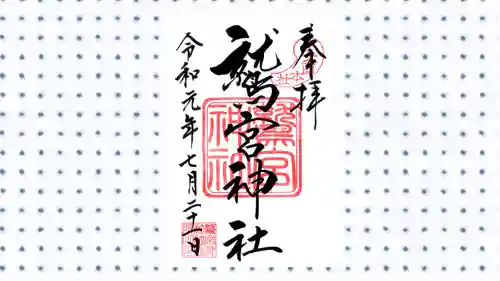 奉拝
鷲宮神社
令和元年七月二十一日
鷲宮神社